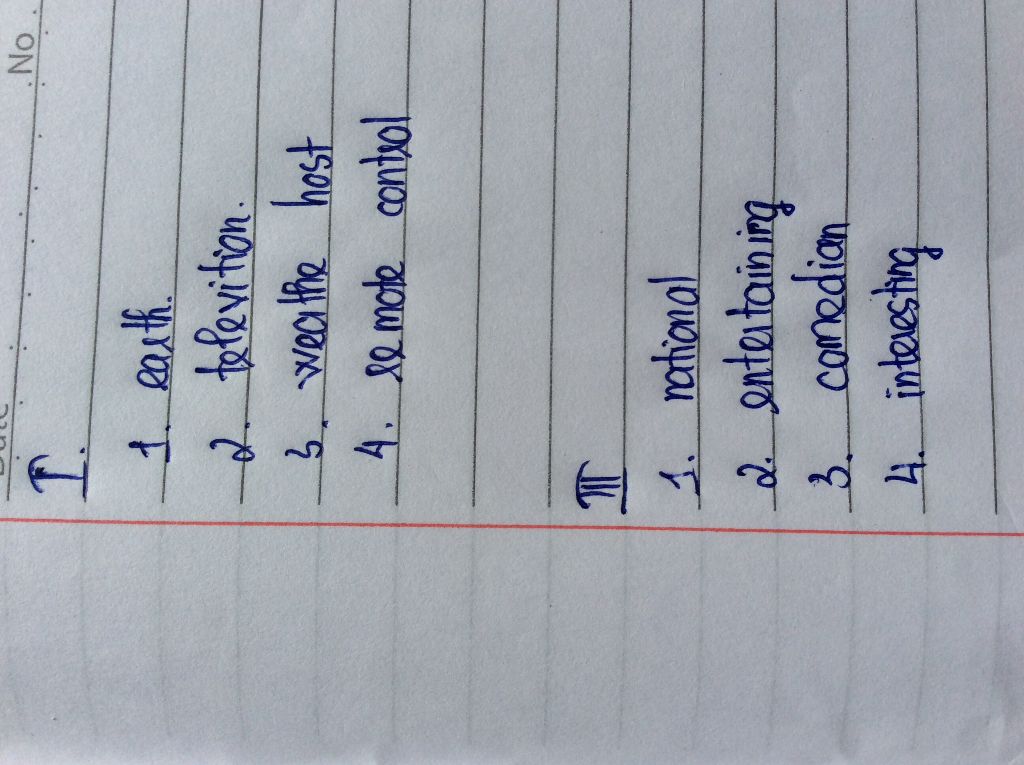 No
I.
1. earth.
2. televition.
3. weathe host
4. remote control
III
1. national
2. entertaining
3. comedian
4. interesting